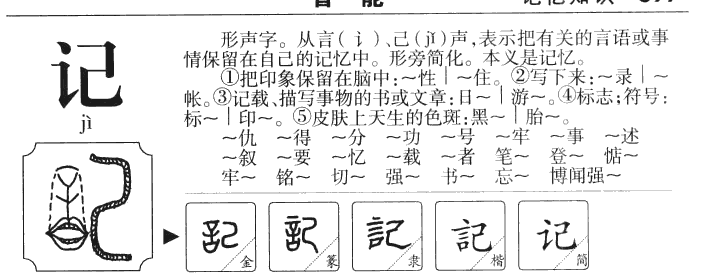 记
jì
形声字。从言(讠)、己(jǐ)声,表示把有关的言语或事
情保留在自己的记忆中。形旁简化。本义是记忆。
①把印象保留在脑中:～性｜～住。②写下来:～录｜～
帐。③记载、描写事物的书或文章:日～｜游～。④标志;符号:
标～｜印～。⑤皮肤上天生的色斑:黑～｜胎～。
～仇 ～得 ～分 ～功 ～号 ～牢 ～事 ～述
～叙 ～要 ～忆 ～载 ～者 笔～ 登～ 惦～
牢～ 铭～ 切～ 强～ 书～ 忘～ 博闻强～
記 金
記 篆
記 隶
記 楷
记 简